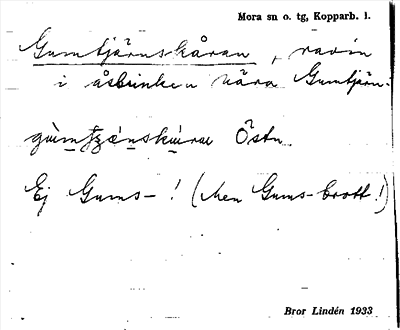 Mora sn o. tg, Kopparb. l.
Gumtjärnskåran, ravin
i åsbrinken nära Gumtjärn.
Östn.
Ej Gums-! (Men Gums-brott!)
Bror Lindén 1933